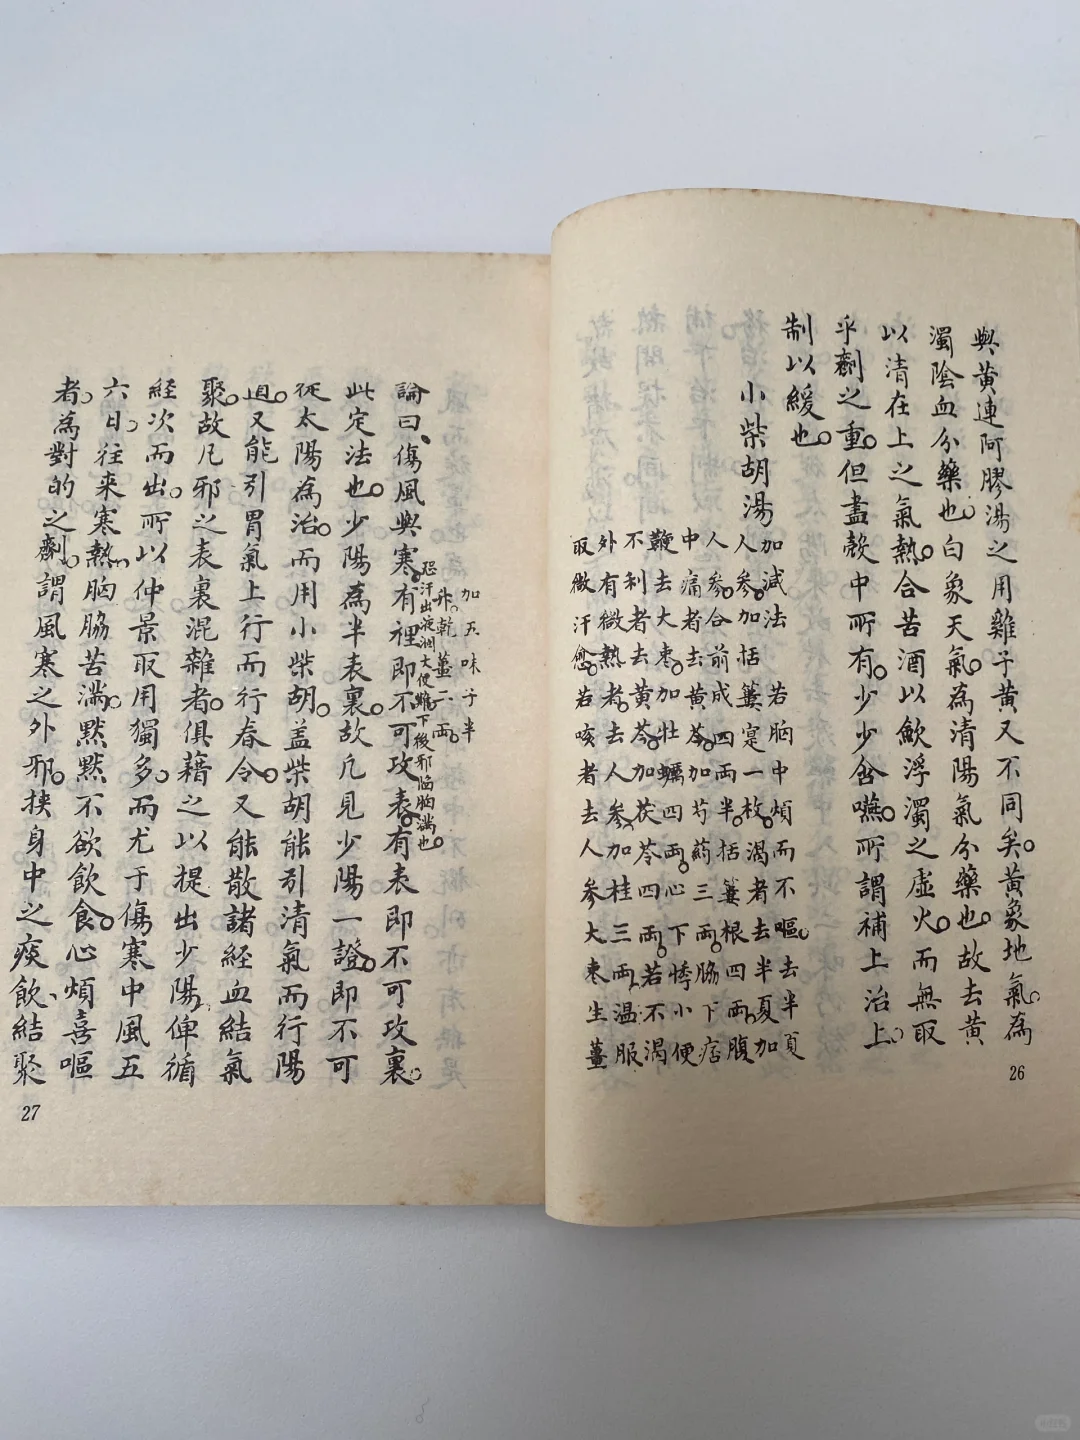 與黃連阿膠湯之用雞子黃又不同矣。黃象地氣。為
濁陰血分藥也。白象天氣。為清陽氣分藥也。故去黃
以清在上之氣熱。合苦酒以斂浮濁之虛火。而無取
乎劑之重。但盡殼中所有。少少含嚥。所謂補上治上。
制以緩也。
小柴胡湯
加減法 若胸中煩而不嘔。去半夏
人參。加栝蔞寔一枚。渴者去半夏加
人參。合前成四兩半。栝蔞根四兩。腹
中痛者去黃芩。加芍藥三兩。脇下痞
鞕去大棗。加牡蠣四兩。心下悸小便
不利者去黃芩。加茯苓四兩。若不渴
外有微熱者。去人參。加桂三兩。温服
取微汗愈。若咳者去人參大棗生薑
26
加五味子半
升。乾薑二兩。
恐汗出液涸大便難下後邪陷胸滿也。
論曰、傷風與寒。有裡即不可攻表。有表即不可攻裏。
此定法也。少陽為半表裏。故凡見少陽一證。即不可
從太陽為治。而用小柴胡。盖柴胡能引清氣而行陽
道。又能引胃氣上行而行春令。又能散諸經血結氣
聚。故凡邪之表裏混雜者。俱藉之以提出少陽。俾循
經次而出。所以仲景取用獨多。而尤于傷寒中風五
六日。往来寒熱。胸脇苦滿。默默不欲飲食。心煩喜嘔
者。為對的之劑。謂風寒之外邪。挾身中之痰飲、結聚
27